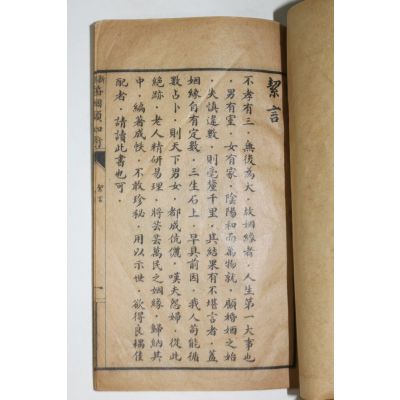 絜言
不孝有三．無後為大．故姻緣者．人生第一大事也
．男有室．女有家．陰陽和而萬物就．顧婚姻之始
．失慎違數．則毫釐千里．其結果有不堪言者．蓋
姻緣自有定數．三生石上．早具前因．我人苟能循
數占卜．則天下男女．都成伉儷．嘆夫怨婦．從此
絕跡．老人精研易理．將芸芸萬民之姻緣．歸納其
中．編著成帙．不敢珍秘．用以示世．欲得良耦佳
配者．請讀此書也可．
絜言
一